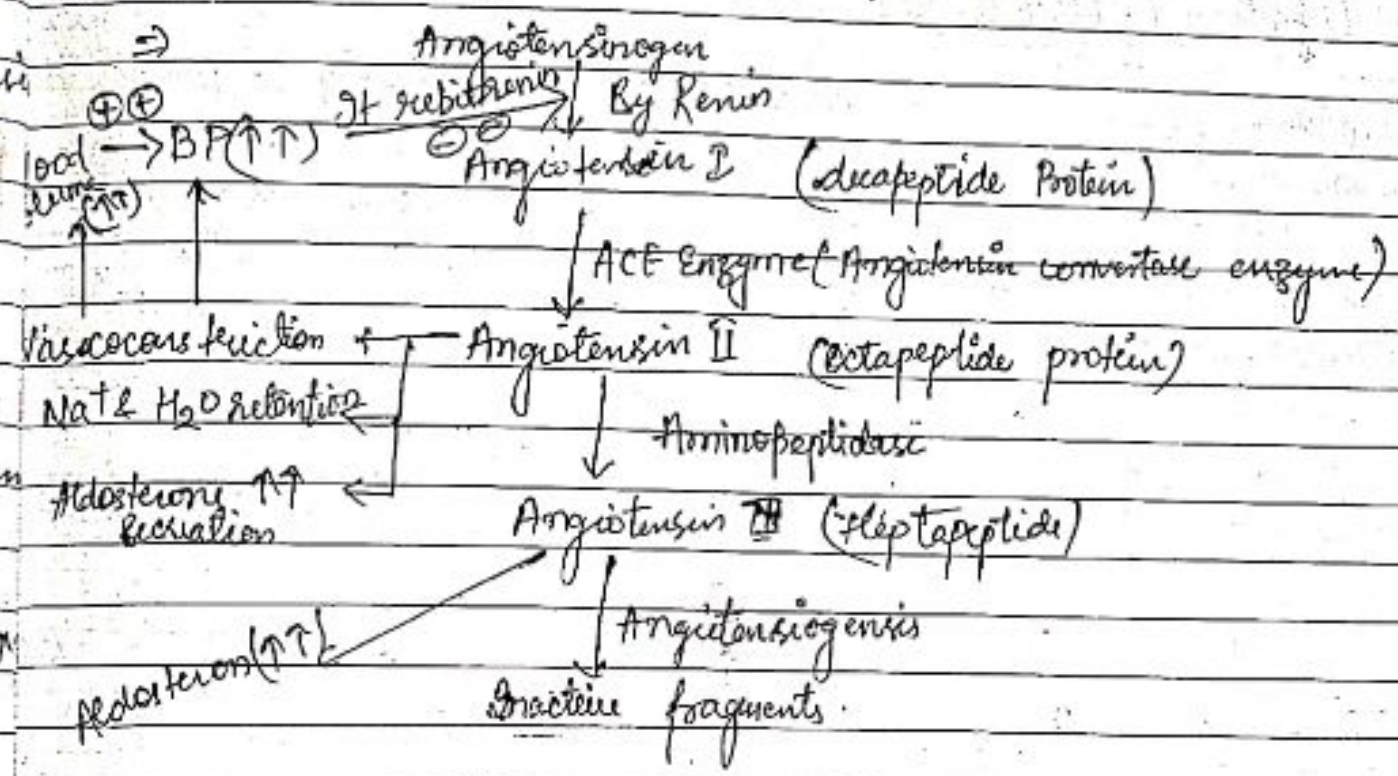 ⇒ Angiotensinogen
⊕⊕ It rebit renin By Renin
lood → BP(↑↑) ⊖⊖
Angiotensin I (decapeptide Protein)
(↑↑)
ACE Enzyme (Angiotensin convertase enzyme)
Vasococonstriction ← Angiotensin II (octapeptide protein)
Na+ & H2O retention
Aminopeptidase
Aldosterone ↑↑
secreation
Angiotensin III (Heptapeptide)
Angiotensiogensis
Aldosteron (↑↑)
Inacteive fragments.